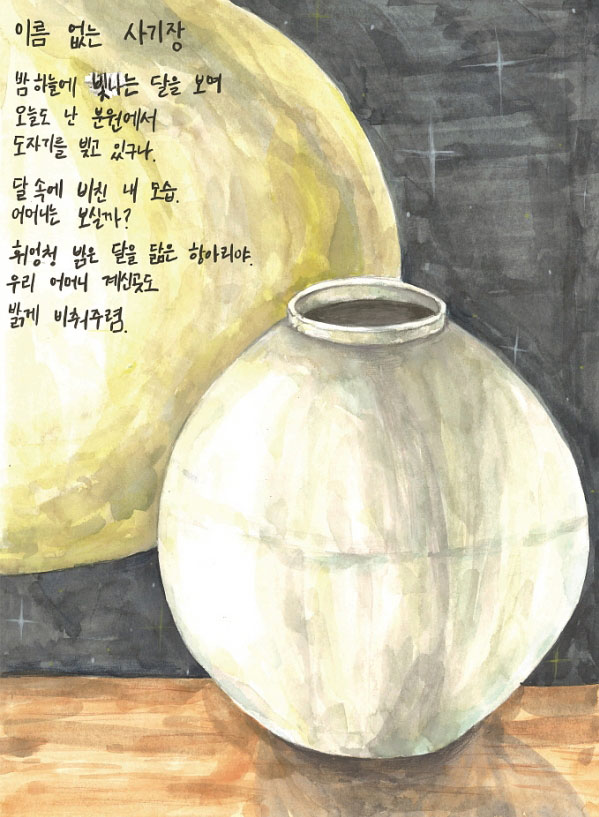 이름 없는 사기장
밤하늘에 빛나는 달을 보며
오늘도 난 분원에서
도자기를 빚고 있구나.
달 속에 비친 내 모습.
어머니는 보실까?
휘엉청 밝은 달을 닮은 항아리야.
우리 어머니 계신곳도
밝게 비춰주렴.